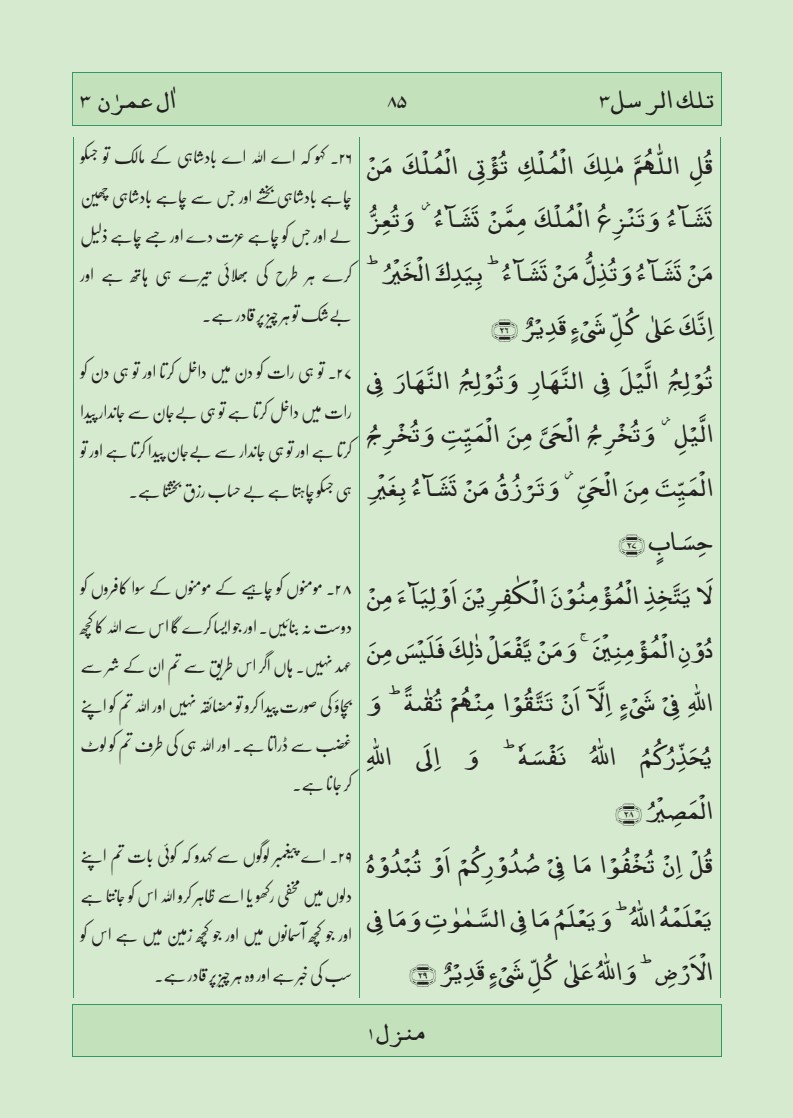 تلك الرسل ۳
۸۵
اٰل عمرٰن ۳
قُلِ اللّٰهُمَّ مٰلِكَ الۡمُلۡكِ تُؤۡتِى الۡمُلۡكَ مَنۡ
تَشَآءُ وَتَنۡزِعُ الۡمُلۡكَ مِمَّنۡ تَشَآءُ ۫ وَتُعِزُّ
مَنۡ تَشَآءُ وَتُذِلُّ مَنۡ تَشَآءُ ؕ بِيَدِكَ الۡخَيۡرُ ؕ
اِنَّكَ عَلٰى كُلِّ شَىۡءٍ قَدِيۡرٌ ﴿۲۶﴾
تُوۡلِجُ الَّيۡلَ فِى النَّهَارِ وَتُوۡلِجُ النَّهَارَ فِى
الَّيۡلِ ۫ وَتُخۡرِجُ الۡحَىَّ مِنَ الۡمَيِّتِ وَتُخۡرِجُ
الۡمَيِّتَ مِنَ الۡحَىِّ ۫ وَتَرۡزُقُ مَنۡ تَشَآءُ بِغَيۡرِ
حِسَابٍ ﴿۲۷﴾
لَا يَتَّخِذِ الۡمُؤۡمِنُوۡنَ الۡكٰفِرِيۡنَ اَوۡلِيَآءَ مِنۡ
دُوۡنِ الۡمُؤۡمِنِيۡنَ ۚ وَمَنۡ يَّفۡعَلۡ ذٰلِكَ فَلَيۡسَ مِنَ
اللّٰهِ فِىۡ شَىۡءٍ اِلَّاۤ اَنۡ تَتَّقُوۡا مِنۡهُمۡ تُقٰٮةً ؕ وَ
يُحَذِّرُكُمُ اللّٰهُ نَفۡسَهٗ ؕ وَ اِلَى اللّٰهِ
الۡمَصِيۡرُ ﴿۲۸﴾
قُلۡ اِنۡ تُخۡفُوۡا مَا فِىۡ صُدُوۡرِكُمۡ اَوۡ تُبۡدُوۡهُ
يَعۡلَمۡهُ اللّٰهُ ؕ وَيَعۡلَمُ مَا فِى السَّمٰوٰتِ وَمَا فِى
الۡاَرۡضِ ؕ وَاللّٰهُ عَلٰى كُلِّ شَىۡءٍ قَدِيۡرٌ ﴿۲۹﴾
۲۶۔ کہو کہ اے اللہ اے بادشاہی کے مالک تو جسکو
چاہے بادشاہی بخشے اور جس سے چاہے بادشاہی چھین
لے اور جس کو چاہے عزت دے اور جسے چاہے ذلیل
کرے ہر طرح کی بھلائی تیرے ہی ہاتھ ہے اور
بے شک تو ہر چیز پر قادر ہے۔
۲۷۔ تو ہی رات کو دن میں داخل کرتا اور تو ہی دن کو
رات میں داخل کرتا ہے تو ہی بے جان سے جاندار پیدا
کرتا ہے اور تو ہی جاندار سے بے جان پیدا کرتا ہے اور تو
ہی جسکو چاہتا ہے بے حساب رزق بخشتا ہے۔
۲۸۔ مومنوں کو چاہیے کے مومنوں کے سوا کافروں کو
دوست نہ بنائیں۔ اور جو ایسا کرے گا اس سے اللہ کا کچھ
عہد نہیں۔ ہاں اگر اس طریق سے تم ان کے شر سے
بچاؤ کی صورت پیدا کرو تو مضائقہ نہیں اور اللہ تم کو اپنے
غضب سے ڈراتا ہے۔ اور اللہ ہی کی طرف تم کو لوٹ
کر جانا ہے۔
۲۹۔ اے پیغمبر لوگوں سے کہدو کہ کوئی بات تم اپنے
دلوں میں مخفی رکھو یا اسے ظاہر کرو اللہ اس کو جانتا ہے
اور جو کچھ آسمانوں میں اور جو کچھ زمین میں ہے اس کو
سب کی خبر ہے اور وہ ہر چیز پر قادر ہے۔
منزل ۱